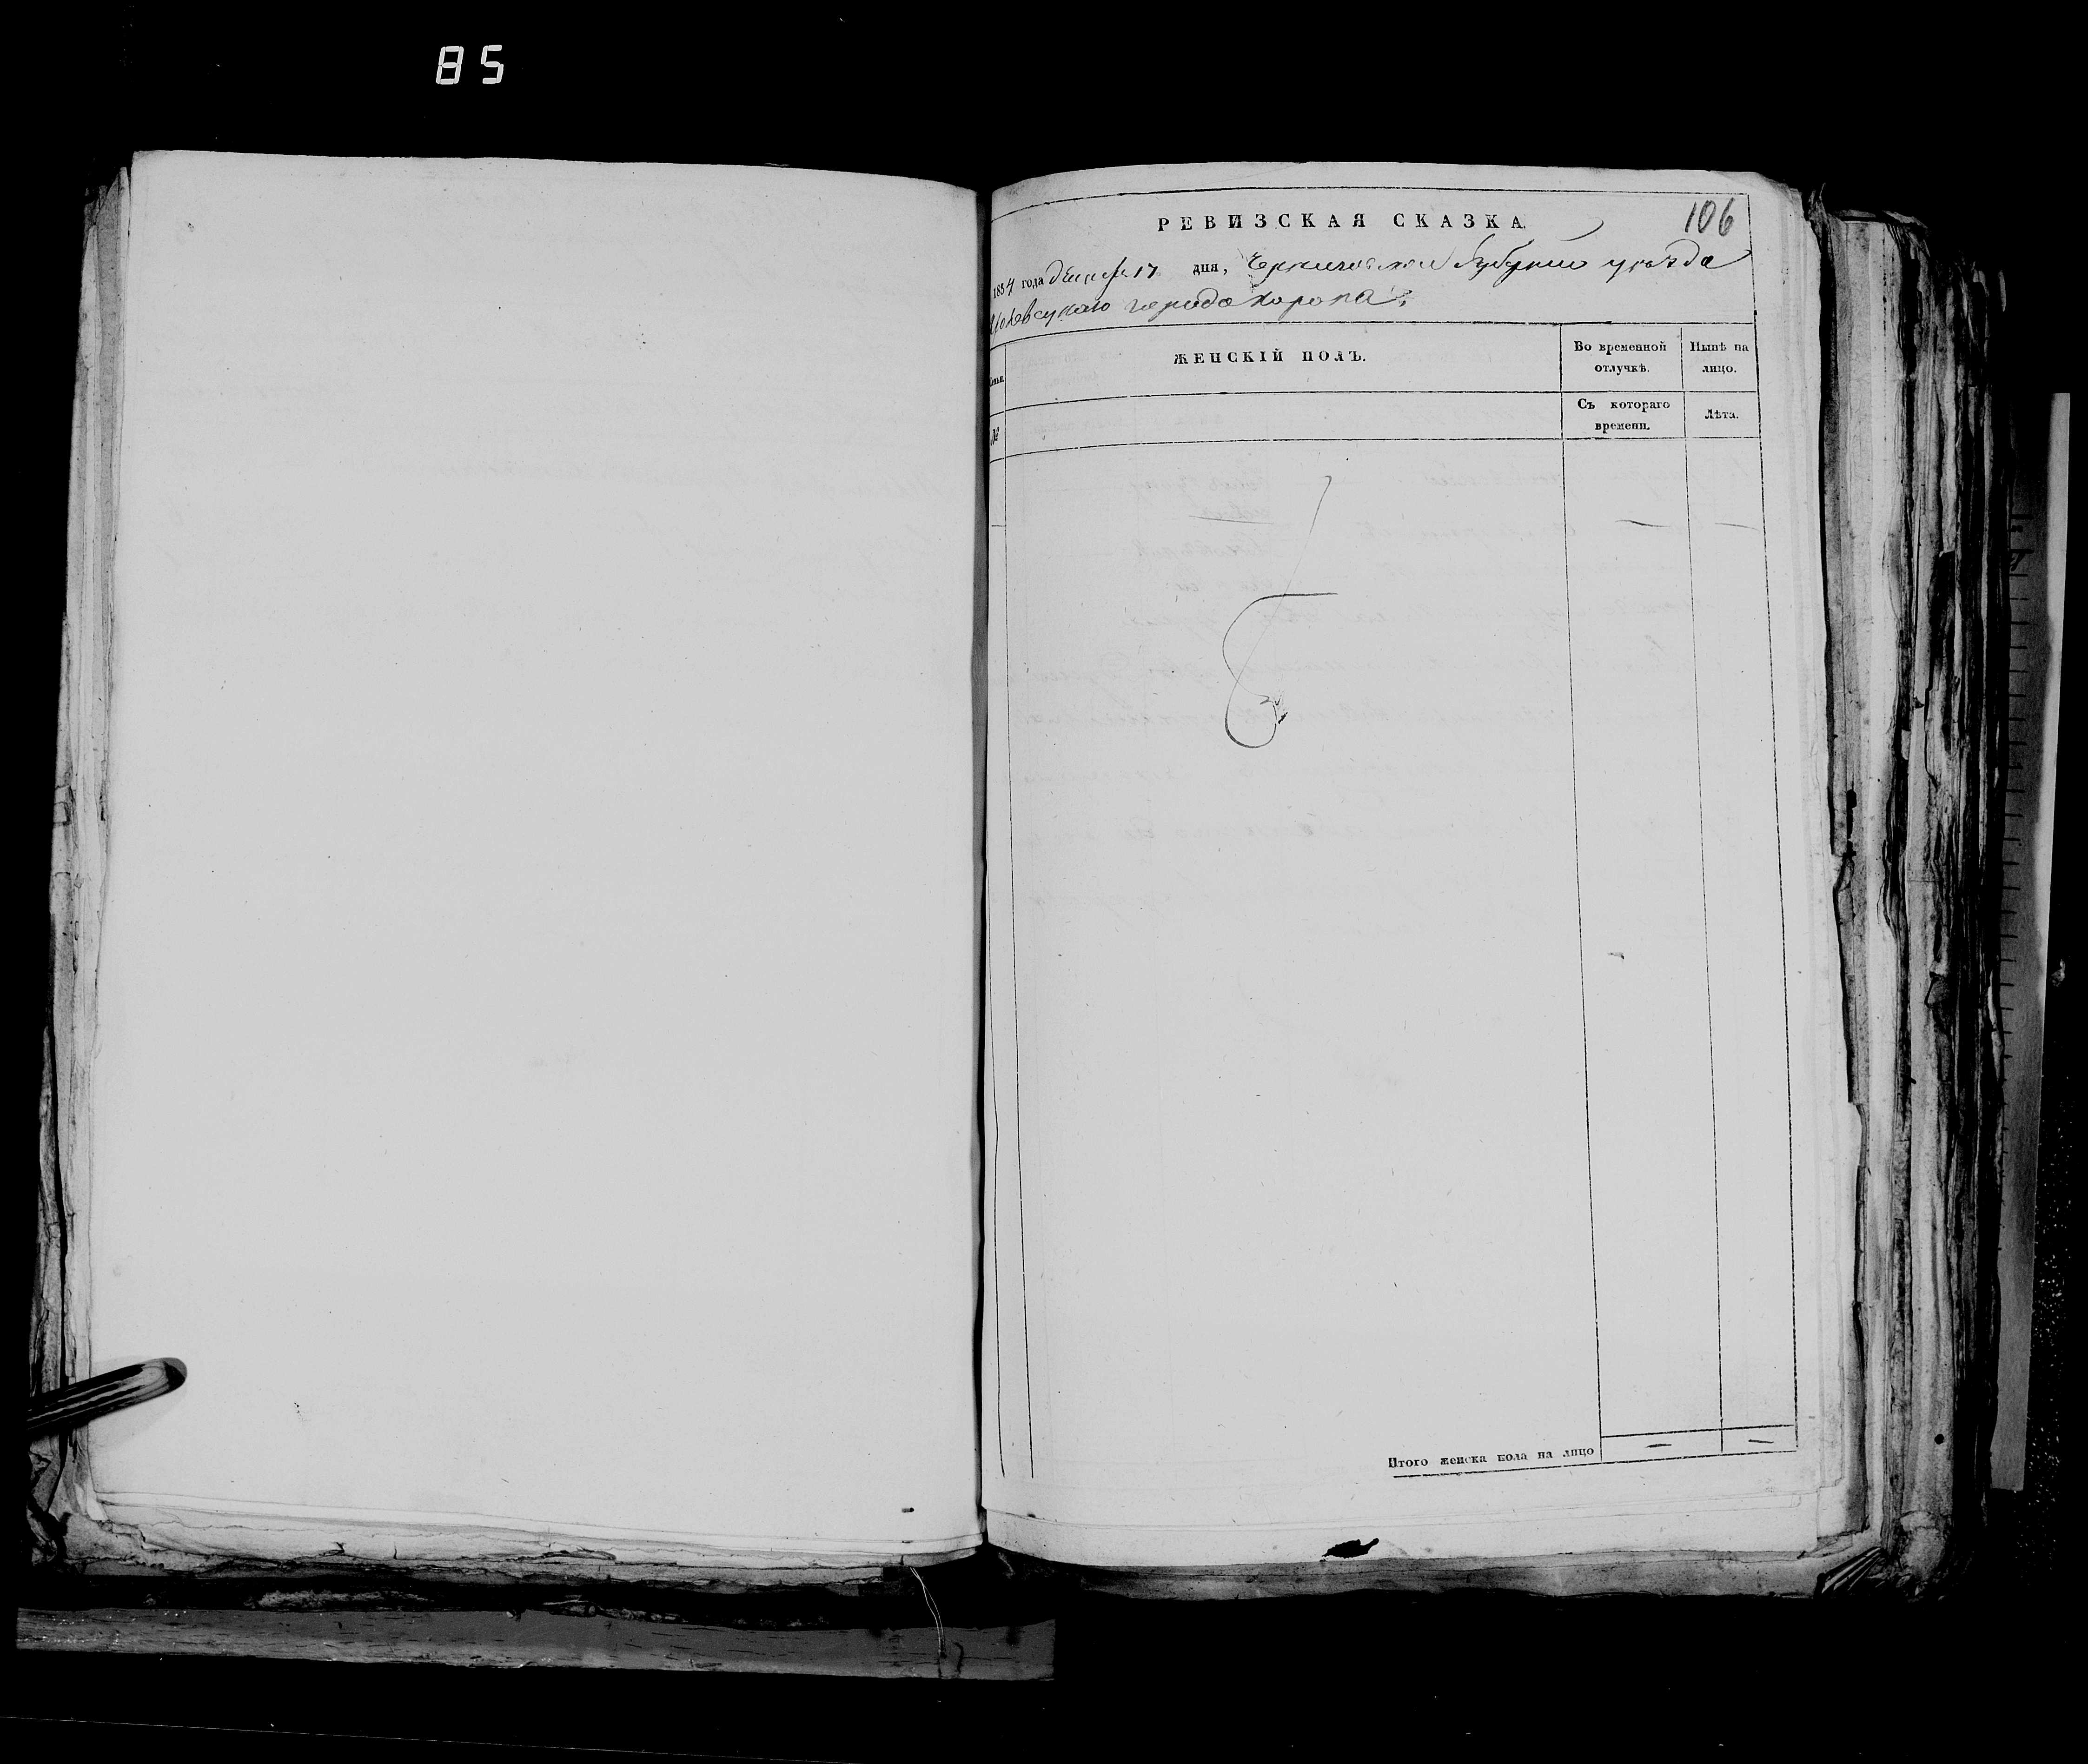 85
106
РЕВИЗСКАЯ СКАЗКА.
1834 года Декабря 17 дня, Черниговской Губернии уѣзда
города Коропа
ЖЕНСКІЙ ПОЛЪ.
Во временной отлучкѣ.
Нынѣ на лицо.
№
Съ котораго времени.
Лѣта.
Итого женска пола на лицо